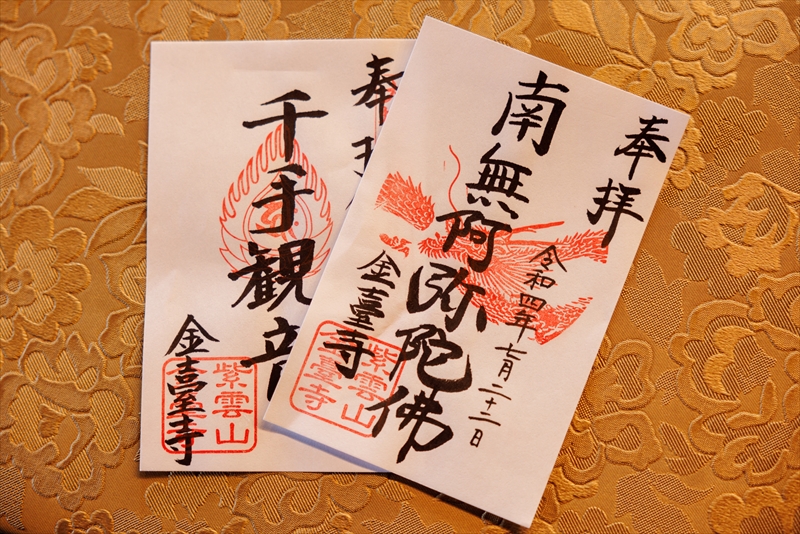 奉拝
南無阿弥陀佛
令和四年七月二十二日
金臺寺
紫雲山
金臺寺
奉拝
千手観音
金臺寺
紫雲山